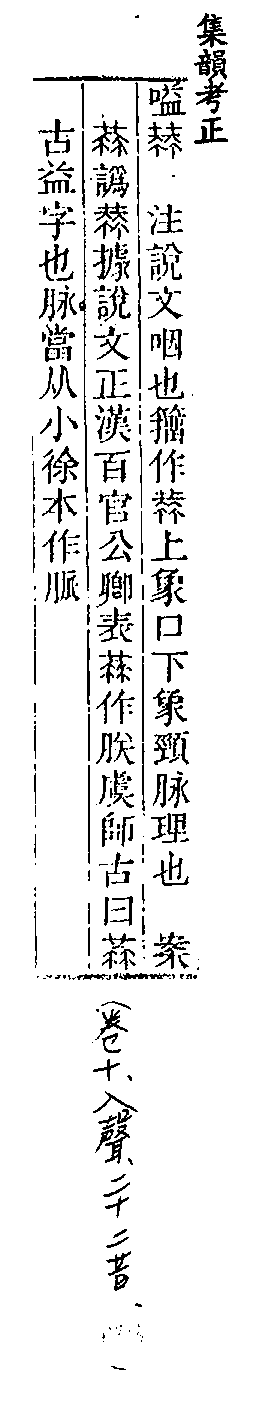 集韻考正
嗌𦶎　注說文咽也籒作𦶎上象口下象頸脉理也　案
𦶎譌𦶎據說文正漢百官公卿表𦶎作朕虞師古曰𦶎
古益字也脉當从小徐本作脈
（卷十、入聲、二十二昔、